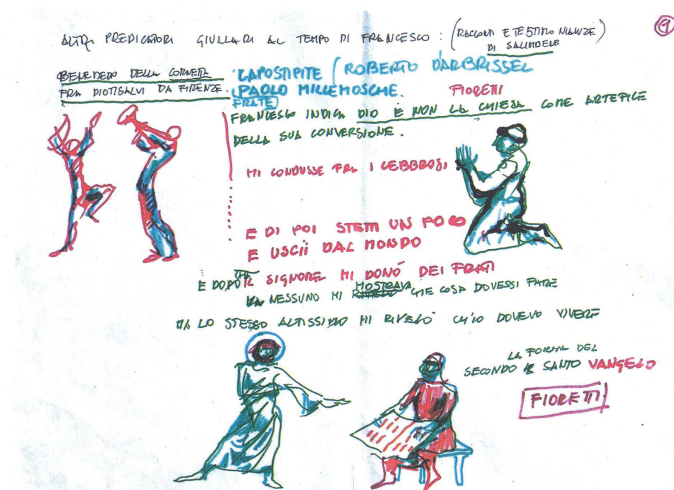 ALTRI PREDICATORI GIULLARI AL TEMPO DI FRANCESCO: (RACCONTI E TESTIMONIANZE
DI SALIMBENE)
9
BENEDETTO DELLA CORNETTA
FRA DIOTISALVI DA FIRENZE
CAPOSTIPITE (ROBERTO D'ARBRISSEL
PAOLO MILLEMOSCHE.
FRATE)
FIORETTI
FRANCESCO INDICA DIO E NON LA CHIESA COME ARTEFICE
DELLA SUA CONVERSIONE.
MI CONDUSSE FRA I LEBBROSI
E DI POI STETTI UN POCO
E USCII DAL MONDO
E DOPO CHE IL SIGNORE MI DONÒ DEI FRATI
NESSUNO MI MOSTRAVA CHE COSA DOVESSI FARE
MA LO STESSO ALTISSIMO MI RIVELÒ CH'IO DOVEVO VIVERE
LA FORMA DEL
SECONDO IL SANTO VANGELO
FIORETTI